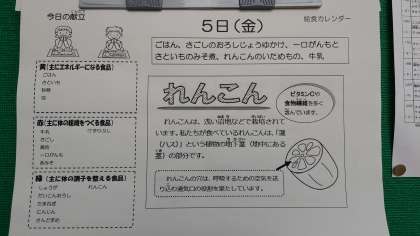 今日の献立
5日(金)
給食カレンダー
ごはん、さごしのおろしじょうゆかけ、一口がんもと
さといものみそ煮、れんこんのいためもの、牛乳
黄(主にエネルギーになる食品)
ごはん
さといも
砂糖
油
赤(主に体の組織をつくる食品)
牛乳
さごし
一口がんも
赤みそ
緑(主に体の調子を整える食品)
しょうが
れんこん
だいこんおろし
たまねぎ
にんじん
さんどまめ
れんこん
ビタミンCや
食物繊維を多く
含んでいます。
れんこんは、浅い沼地などで栽培されて
います。私たちが食べているれんこんは、「蓮
(ハス)」という植物の地下茎(地中にある
茎)の部分です。
れんこんの穴は、呼吸するための空気を送
り込む通気口の役割を果たしています。